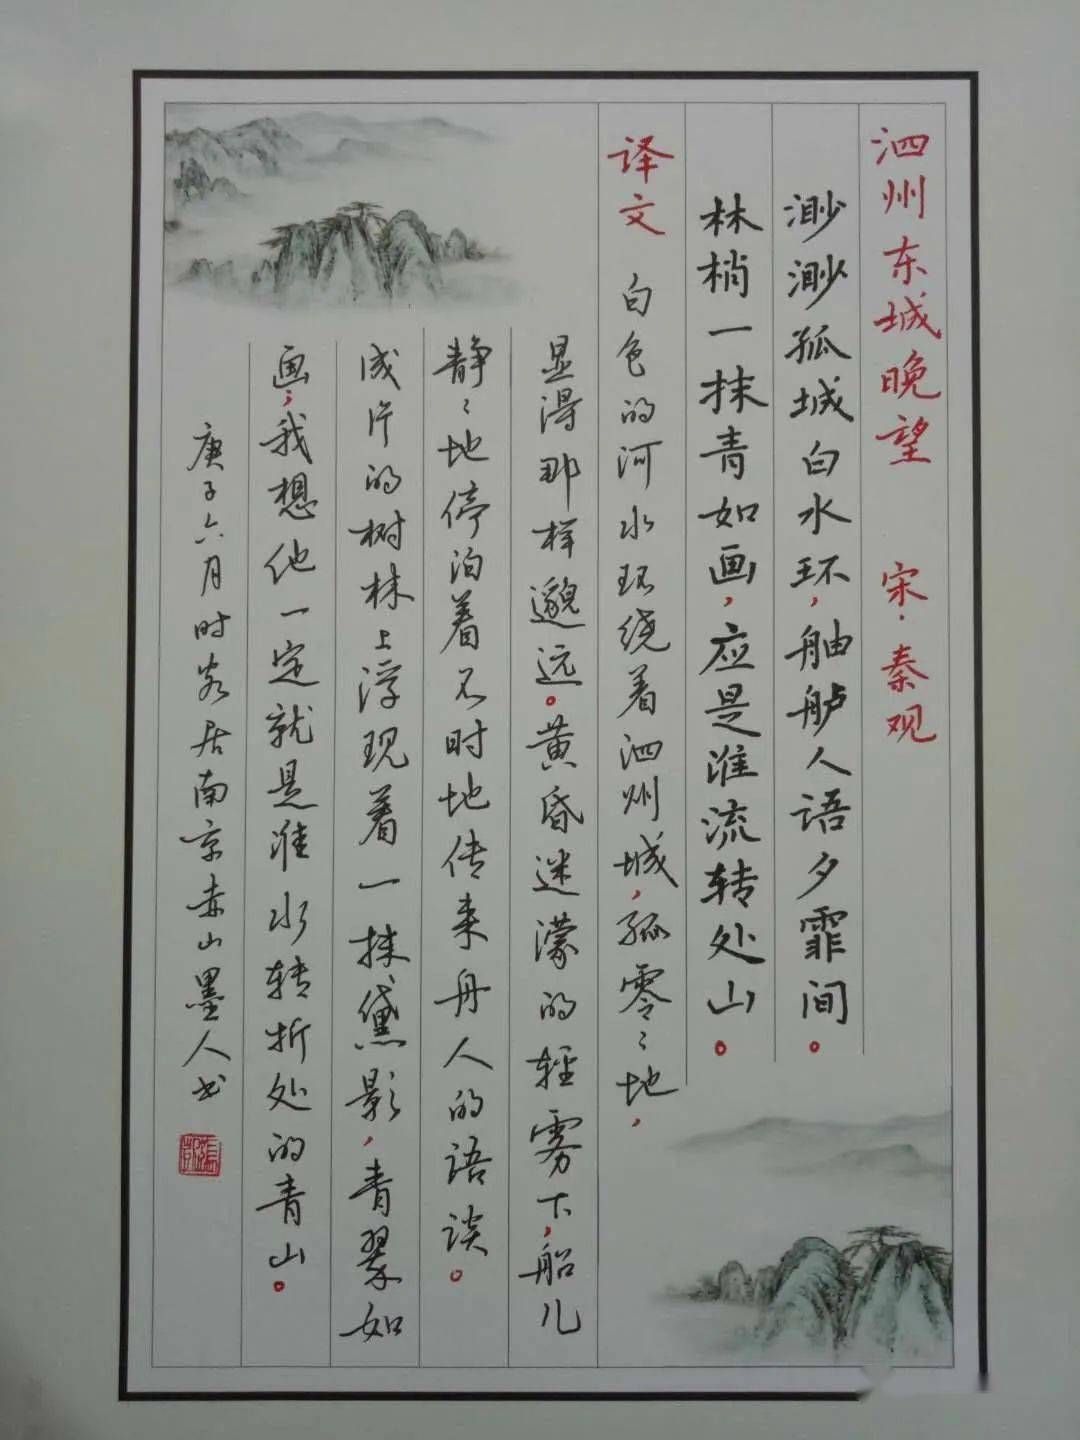 泗州东城晚望 宋·秦观
渺渺孤城白水环，舳舻人语夕霏间。
林梢一抹青如画，应是淮流转处山。
译文 白色的河水环绕着泗州城，孤零〻地，
显得那样邈远。黄昏迷濛的轻雾下，船儿
静〻地停泊着不时地传来舟人的语谈。
成片的树林上浮现着一抹黛影，青翠如
画，我想他一定就是淮水转折处的青山。
庚子六月时客居南京赤山墨人书